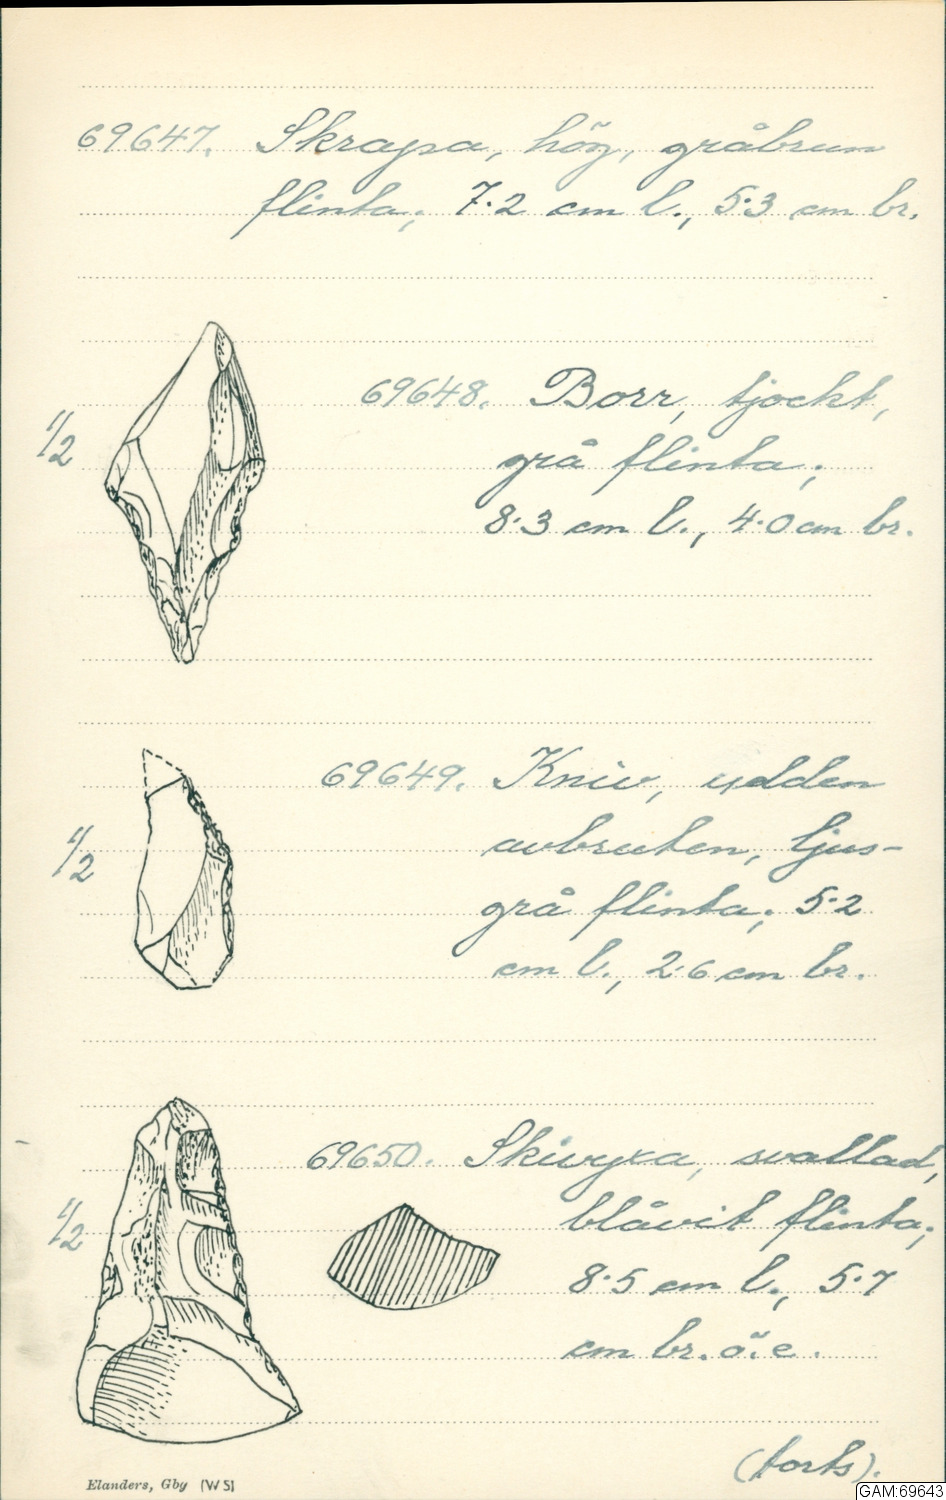 69647. Skrapa, hög, gråbrun
flinta; 7·2 cm l., 5·3 cm br.
1/2
69648. Borr, tjockt,
grå flinta;
8·3 cm l., 4·0 cm br.
1/2
69649. Kniv, udden
avbruten, ljus-
grå flinta; 5·2
cm l., 2·6 cm br.
1/2
69650. Skivyxa, svallad,
blåvit flinta;
8·5 cm l., 5·7
cm br. ö. e.
(forts).
Elanders, Gbg (WS)
GAM:69643